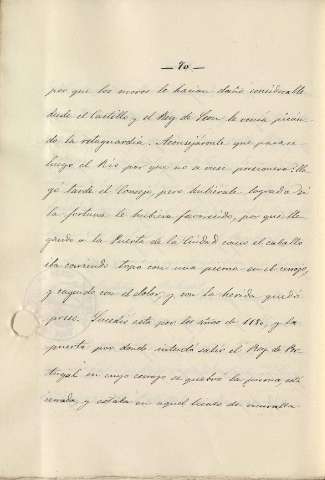 — 70 —
por que los moros le hacian daño considerable
desde el Castillo y el Rey de Leon le venia pican-
do la retaguardia. Aconsejaronle que pasara
luego el Rio por que no a verse preso. Lle-
gó tarde el Consejo, pero hubierale logrado si
la fortuna le hubiera favorecido, por que lle-
gando a la Puerta de la Ciudad como el caballo
iba corriendo topó con una pierna en el cerrojo,
y cayendo con el dolor, y con la herida quedó
preso. Sucedió esto por los años de 1180, y la
puerta por donde intentó salir el Rey de Por-
tugal en cuyo cerrojo se quebró la pierna, está
cerrada, y estaba en aquel lienzo de muralla